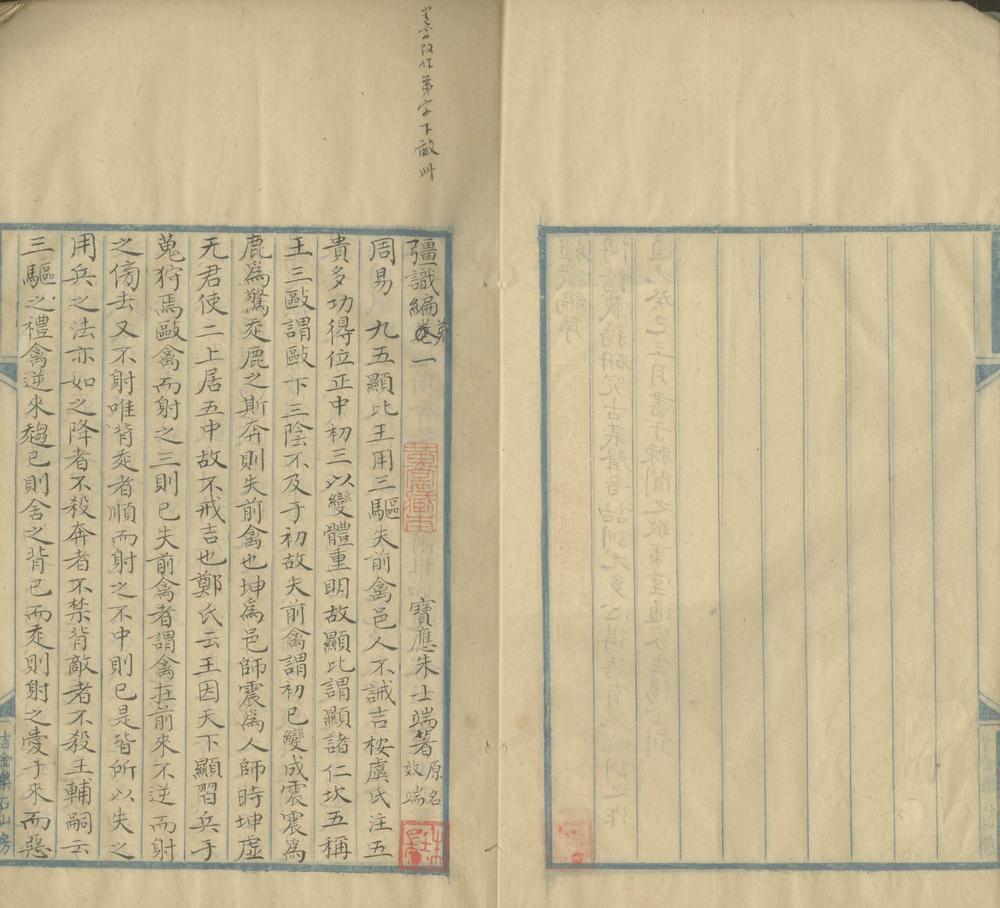 字改作第字下敵此
彊識編卷第一
寶應朱士端著原名效端
周易　九五顯比王用三驅失前禽邑人不誡吉桉虞氏注五
貴多功得位正中初三以變體重明故顯比謂顯諸仁坎五稱
王三敺謂敺下三陰不及于初故失前禽謂初已變成震震爲
鹿爲驚𡘋鹿之斯奔則失前禽也坤爲邑師震爲人師時坤虛
无君使二上居五中故不戒吉也鄭氏云王因天下顯習兵于
蒐狩焉敺禽而射之三則已失前禽者謂禽在前來不逆而射
之傍去又不射唯背𡘋者順而射之不中則已是皆所以失之
用兵之法亦如之降者不殺奔者不禁背敵者不殺王輔嗣云
三驅之禮禽逆來趨已則舍之背已而𡘋則射之愛于來而惡
吉金樂石山房